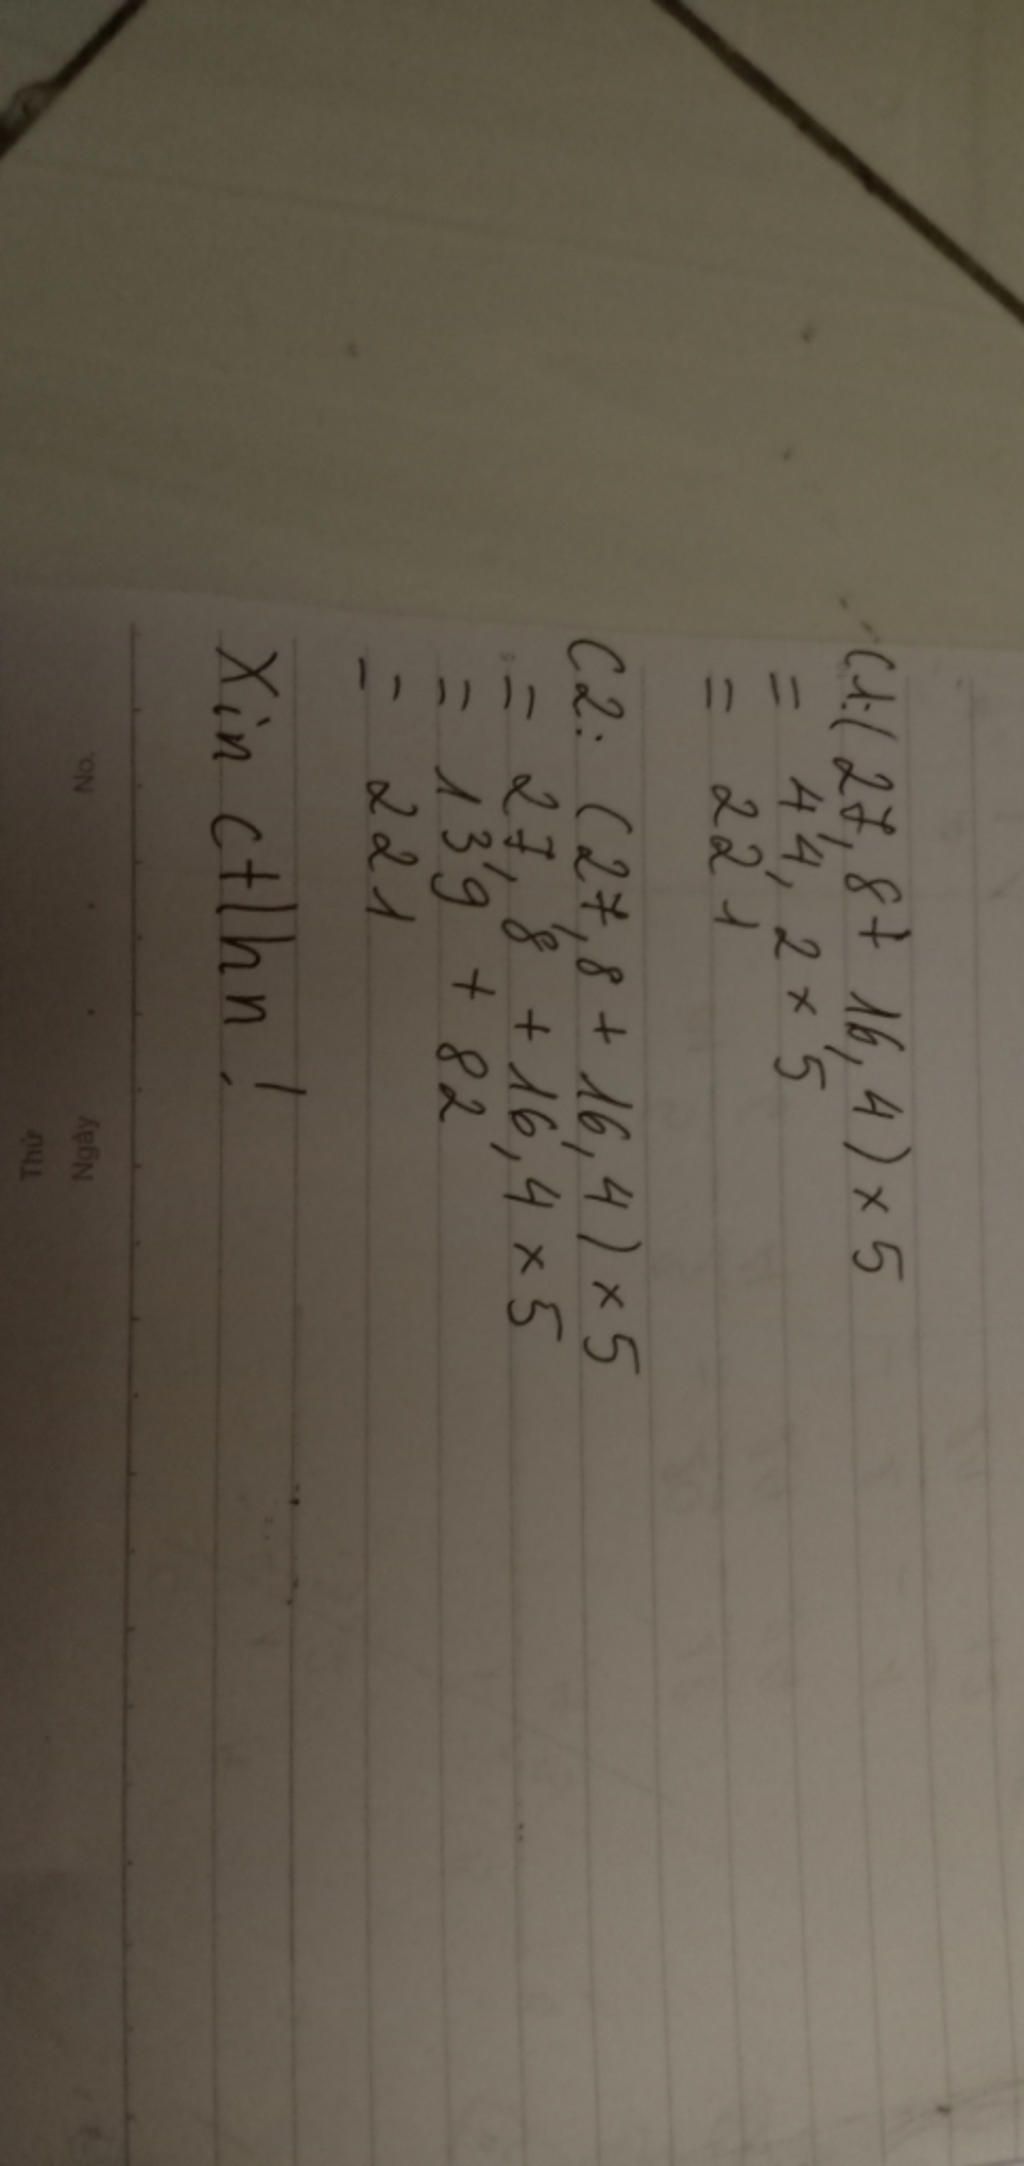 C1:(27,8+ 16,4) × 5
= 44,2 × 5
= 221
C2: (27,8 + 16,4) × 5
= 27,8 + 16,4 × 5
= 139 + 82
= 221
Xin ctlhn!
No.
Ngày
Thứ